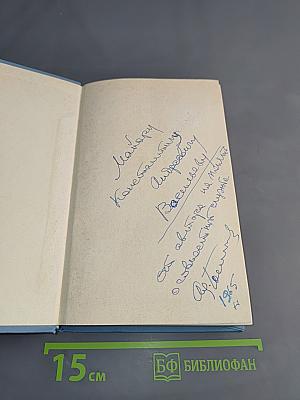 Майору
Константину
Андреевичу
Васильеву
от автора на память
о совместной службе
1965
15 см
БФ БИБЛИОФАН